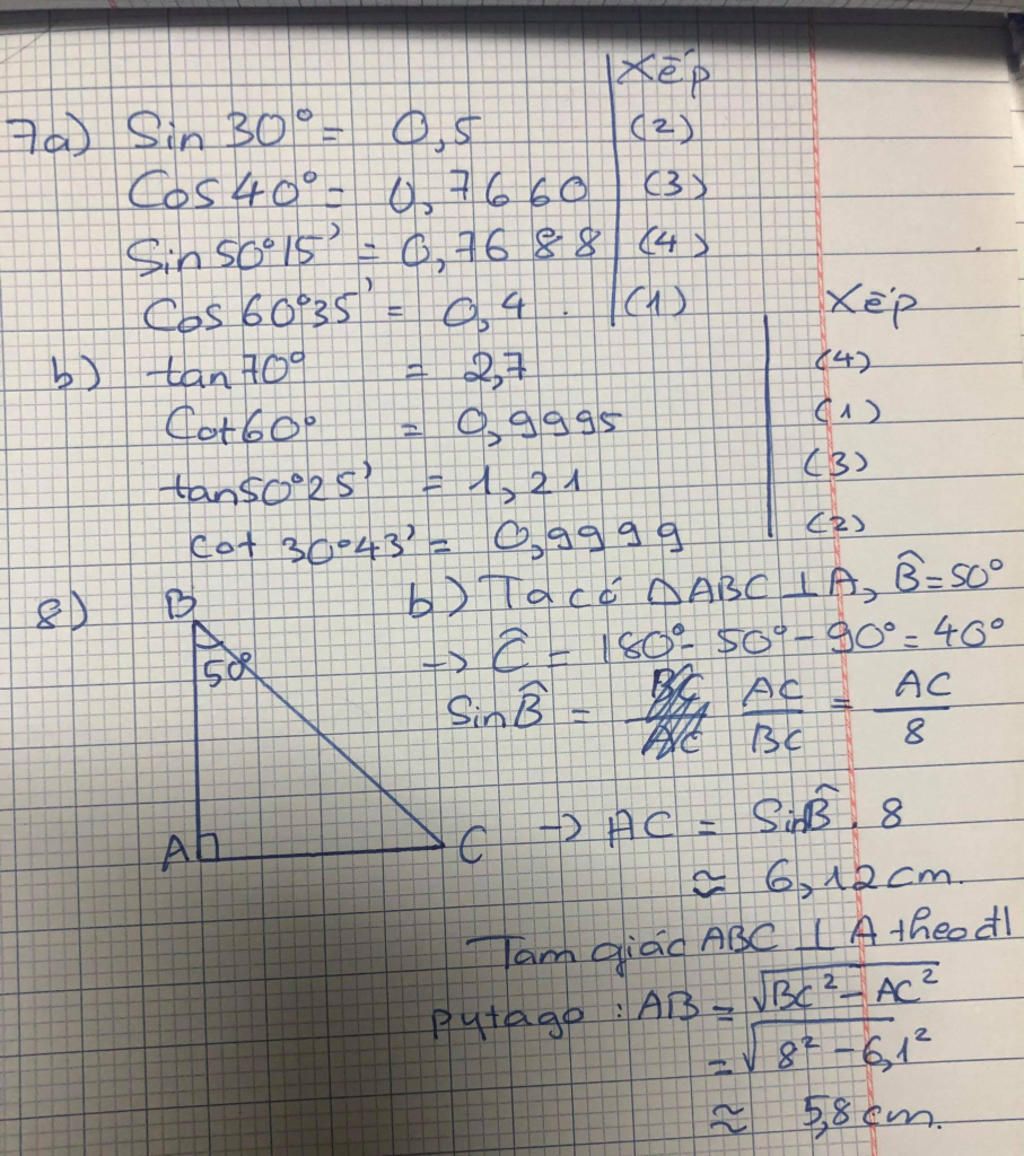 Xếp
7a) Sin 30° = 0,5 (2)
Cos 40° = 0,7660 (3)
Sin 50°15' = 0,7688 (4)
Cos 60°35' = 0,4. (1)
Xếp
b) tan 70° = 2,7 (4)
Cot 60° = 0,9995 (1)
tan 50°25' = 1,21 (3)
cot 30°43' = 0,9999 (2)
8) B 50° A C
b) Ta có ΔABC ⊥ A, B̂ = 50°
→ Ĉ = 180° - 50° - 90° = 40°
Sin B̂ = AC/BC = AC/8
→ AC = Sin B̂ . 8
≈ 6,12 cm.
Tam giác ABC ⊥ A theo đl
pytago : AB = √BC² - AC²
= √8² - 6,1²
≈ 5,8 cm.